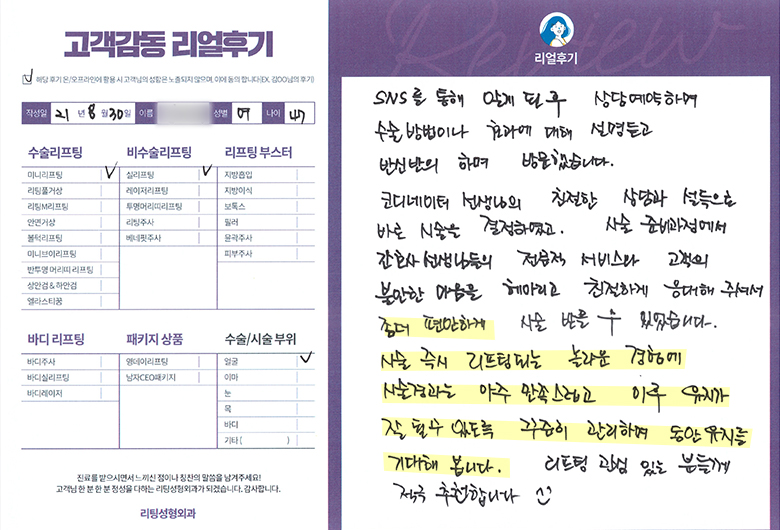 고객감동 리얼후기
해당 후기 온/오프라인에 활용 시 고객님의 성함은 노출되지 않으며, 이에 동의 합니다(EX. 김OO님의 후기)
작성일 21 년 8 월 30 일 이름 성별 여 나이 47
수술리프팅 비수술리프팅 리프팅 부스터
미니리프팅 실리프팅 지방흡입
리팅풀거상 레이저리프팅 지방이식
리팅M리프팅 투명머리띠리프팅 보톡스
안면거상 리팅주사 필러
볼턱리프팅 베네핏주사 윤곽주사
미니브이리프팅 피부주사
반투명 머리띠 리프팅
상안검 & 하안검
엘라스티꿈
바디 리프팅 패키지 상품 수술/시술 부위
바디주사 영데이리프팅 얼굴
바디실리프팅 남자CEO패키지 이마
바디레이저 눈
목
바디
기타 ( )
진료를 받으시면서 느끼신 점이나 칭찬의 말씀을 남겨주세요!
고객님 한 분 한 분 정성을 다하는 리팅성형외과가 되겠습니다. 감사합니다.
리팅성형외과
Review
리얼후기
SNS를 통해 알게 된 후 상담예약하며
수술방법이나 효과에 대해 설명듣고
반신반의 하며 방문했습니다.
코디네이터 선생님의 친절한 상담과 설득으로
바로 시술을 결정하였고. 시술 준비과정에서
간호사 선생님들의 전문적 서비스와 고객의
불안한 마음을 헤아리고 친절하게 응대해 주셔서
좀더 편안하게 시술 받을 수 있었습니다.
시술 즉시 리프팅되는 놀라운 경험에
시술결과는 아주 만족스럽고 이후 유지가
잘 될수 있도록 꾸준히 관리하며 동안유지를
기대해 봅니다. 리프팅 관심 있는 분들께
적극 추천합니다